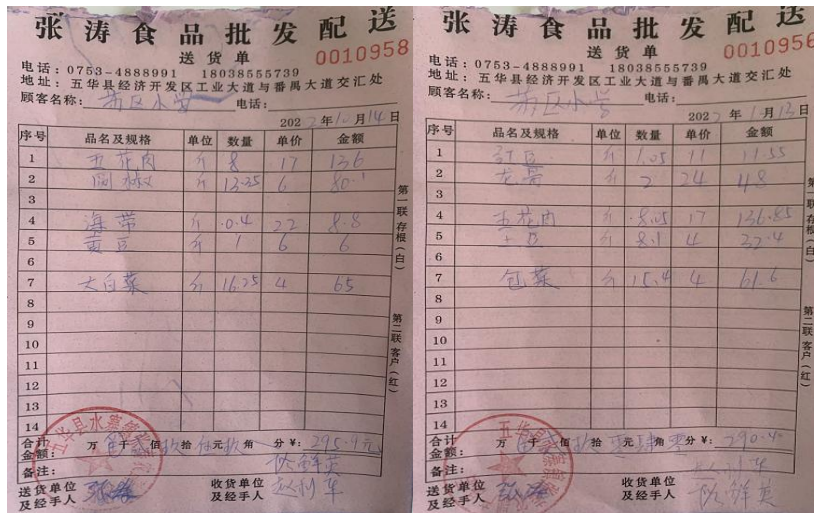 张涛食品批发配送
送货单
0010958
电话：0753-4888991 18038555739
地址：五华县经济开发区工业大道与番禺大道交汇处
顾客名称： 电话：
2022年10月14日
序号 品名及规格 单位 数量 单价 金额
1 五花肉 斤 8 17 136
2 圆椒 斤 13.35 6 80.1
3
4 海带 斤 0.4 22 8.8
5 黄豆 斤 1 6 6
6
7 大白菜 斤 16.25 4 65
8
9
10
11
12
13
14
第一联 存根（白）
第二联 客户（红）
合计金额： 万 仟 佰 拾 元 角 分 ¥：295.9元
备注：
送货单位及经手人 张涛 收货单位及经手人
张涛食品批发配送
送货单
0010956
电话：0753-4888991 18038555739
地址：五华县经济开发区工业大道与番禺大道交汇处
顾客名称： 电话：
2022年10月13日
序号 品名及规格 单位 数量 单价 金额
1 红豆 斤 1.05 11 11.55
2 斤 2 24 48
3
4 五花肉 斤 8.05 17 136.85
5 土豆 斤 8.1 4 32.4
6
7 包菜 斤 15.4 4 61.6
8
9
10
11
12
13
14
第一联 存根（白）
第二联 客户（红）
合计金额： 万 仟 佰 拾 元 角 分 ¥：290.4
备注：
送货单位及经手人 张涛 收货单位及经手人